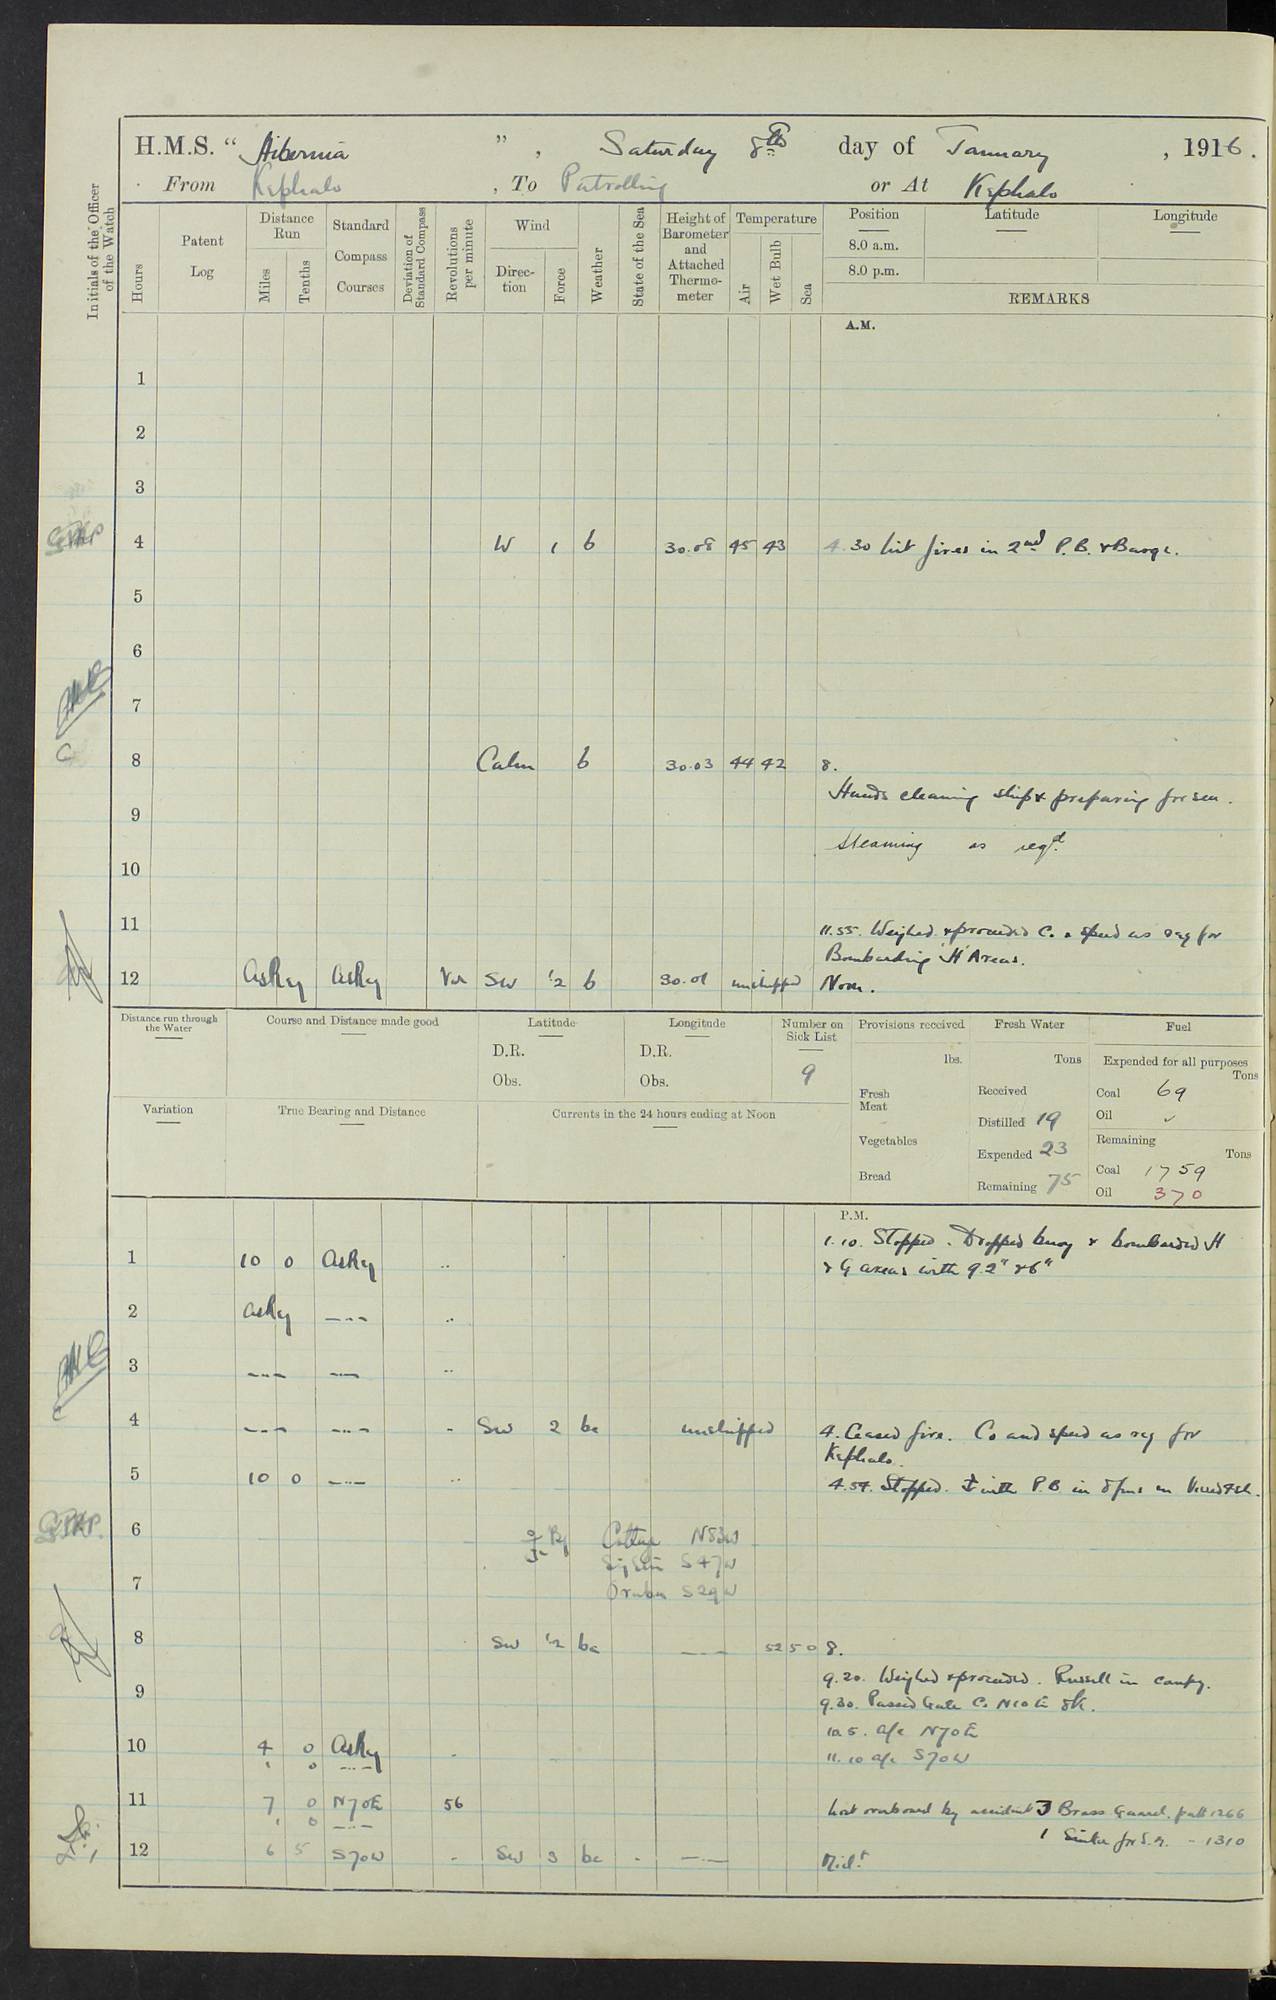 H.M.S. " Hibernia ", Saturday 8th day of January, 1916.
From Kephalo, To Patrolling or At Kephalo
Initials of the Officer of the Watch
Hours
Patent Log
Distance Run
Miles
Tenths
Standard Compass Courses
Deviation of Standard Compass
Revolutions per minute
Wind
Direction
Force
Weather
State of the Sea
Height of Barometer and Attached Thermometer
Temperature
Air
Wet Bulb
Sea
Position Latitude Longitude
8.0 a.m.
8.0 p.m.
REMARKS
A.M.
1
2
3
4 W 1 b 30.08 45 43 4.30 lit fires in 2nd P.B. & Barge.
5
6
7
8 Calm b 30.03 44 42 8.
Hands cleaning ship & preparing for sea.
9
Steaming as reqd.
10
11 11.55. Weighed & proceeded Co. & speed as req for
Bombarding 'H' Areas.
12 As Req As Req Var SW 1/2 b 30.01 unshipped Noon.
Distance run through the Water
Course and Distance made good
Latitude
D.R.
Obs.
Longitude
D.R.
Obs.
Number on Sick List
9
Provisions received
lbs.
Fresh Meat
Vegetables
Bread
Fresh Water
Tons
Received
Distilled 19
Expended 23
Remaining 75
Fuel
Expended for all purposes
Tons
Coal 69
Oil ✓
Remaining
Tons
Coal 1759
Oil 370
Variation
True Bearing and Distance
Currents in the 24 hours ending at Noon
P.M.
1.10. Stopped. Dropped buoy & bombarded H
1 10 0 As Req .. & G areas with 9.2" & 6"
2 As Req -..- ..
3 -..- -..- ..
4 -..- -..- .. SW 2 bc unshipped 4. Ceased fire. Co and speed as req for
Kephalo.
5 10 0 -..- .. 4.54. Stopped. ⚓ with P.B in 8 fms
6 Brg Cottage N83W
Sig Stn S47W
7 S29W
8 SW 1/2 bc -..- 52 50 8.
9.20. Weighed & proceeded. Russell in company.
9 9.30. Passed Gate Co. N10E 8K.
10.5. a/c N70E
10 4 0 As Req . 11.10 a/c S70W
11 7 0 N70E 56 Lost overboard by accident 3 Brass Guard. patt 1266
1 Sinker for S.G. - 1310
12 6 5 S70W . SW 3 bc . -..- Midt.